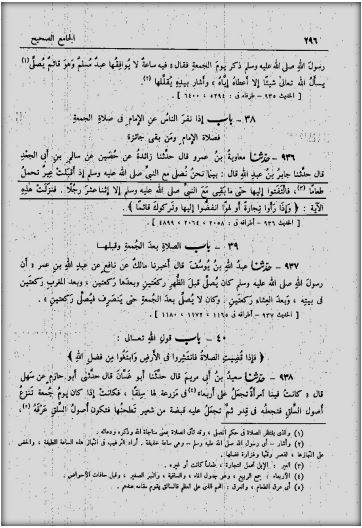 ٢٩٦ الجامع الصحيح
رسول الله صلى الله عليه وسلم ذكر يوم الجمعة فقال « فيه ساعة لا يوافقها عبد مسلم وهو قائم يصلى (١)
يسأل الله تعالى شيئا إلا أعطاه إياه ، وأشار بيده يقللها (٢)
[ الحديث ٩٣٥ - طرفاه فى : ٥٢٩٤ ، ٦٤٠٠ ]
٣٨ - باب إذا نفر الناس عن الإمام فى صلاة الجمعة
فصلاة الإمام ومن بقى جائزة
٩٣٦ - حدثنا معاوية بن عمرو قال حدثنا زائدة عن حصين عن سالم بن أبى الجعد
قال حدثنا جابر بن عبد الله قال : بينا نحن نصلى مع النبى صلى الله عليه وسلم إذ أقبلت عير تحمل
طعاما (٣)، فالتفتوا إليها حتى ما بقى مع النبى صلى الله عليه وسلم إلا إثنا عشر رجلا . فنزلت هذه
الآية : ﴿ وإذا رأوا تجارة أو لهوا انفضوا إليها وتركوك قائما ﴾ .
[ الحديث ٩٣٦ - أطرافه فى : ٢٠٥٨ ، ٢٠٦٤ ، ٤٨٩٩ ]
٣٩ - باب الصلاة بعد الجمعة وقبلها
٩٣٧ - حدثنا عبد الله بن يوسف قال أخبرنا مالك عن نافع عن عبد الله بن عمر « أن
رسول الله صلى الله عليه وسلم كان يصلى قبل الظهر ركعتين وبعدها ركعتين ، وبعد المغرب ركعتين
فى بيته ، وبعد العشاء ركعتين . وكان لا يصلى بعد الجمعة حتى ينصرف فيصلى ركعتين » .
[ الحديث ٩٣٧ - أطرافه فى : ١١٦٥ ، ١١٧٢ ، ١١٨٠ ]
٤٠ - باب قول الله تعالى :
﴿ فإذا قضيت الصلاة فانتشروا فى الأرض وابتغوا من فضل الله ﴾
٩٣٨ - حدثنا سعيد بن أبى مريم قال حدثنا أبو غسان قال حدثنى أبو حازم عن سهل
قال « كانت فينا امرأة تجعل على أربعاء (٤) فى مزرعة لها سلقا ، فكانت إذا كان يوم جمعة تنزع
أصول السلق فتجعله فى قدر ثم تجعل عليه قبضة من شعير تطحنها فتكون أصول السلق عرقه (٥)
(١) والذى ينتظر الصلاة فى حكم المصلى ، وقد تأتى الصلاة بمعنى مناجاة الله والدعاء وذكره ودعائه .
(٢) وأشار - أى رسول الله صلى الله عليه وسلم - وهى ساعة خفيفة . أراد الترغيب فى انتهاز هذه الساعة اللطيفة ، والحض
على انتهازها ، لقصر وقتها وغزارة فضلها .
(٣) العير : الإبل تحمل التجارة ، طعاما كانت أو غيره .
(٤) الأربعاء : جمع الربيع ، وهو جدول الماء ، والساقية ، والنهر الصغير ، وقيل حافات الأحواض .
(٥) أى عرق الطعام ، والعرق : اللحم الذى على العظم